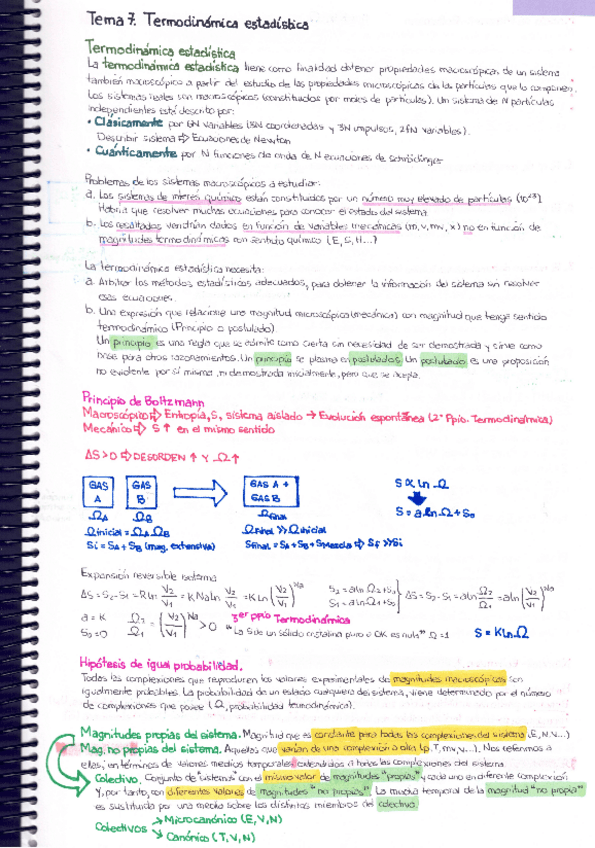 Tema 7. Termodinámica estadística
Termodinámica estadística
La termodinámica estadística tiene como finalidad obtener propiedades macroscópicas de un sistema
también macroscópico a partir del estudio de las propiedades microscópicas de las partículas que lo componen.
Los sistemas reales son macroscópicos (constituidos por moles de partículas). Un sistema de N partículas
independientes está descrito por:
• Clásicamente por 6N variables (3N coordenadas y 3N impulsos, 2fN variables).
Describir sistema ⇨ Ecuaciones de Newton
• Cuánticamente por N funciones de onda de N ecuaciones de Schrödinger
Problemas de los sistemas macroscópicos a estudiar:
a. Los sistemas de interés químico están constituidos por un número muy elevado de partículas (10²³)
Habría que resolver muchas ecuaciones para conocer el estado del sistema.
b. Los resultados vendrían dados en función de variables mecánicas (m, v, mv, x) no en función de
magnitudes termodinámicas con sentido químico (E, S, H...)
La termodinámica estadística necesita:
a. Arbitrar los métodos estadísticos adecuados, para obtener la información del sistema sin resolver
esas ecuaciones.
b. Una expresión que relacione una magnitud microscópica (mecánica) con magnitud que tenga sentido
termodinámico (Principio o postulado)
Un principio es una regla que se admite como cierta sin necesidad de ser demostrada y sirve como
base para otros razonamientos. Un principio se plasma en postulados. Un postulado es una proposición
no evidente por sí misma, ni demostrada inicialmente, pero que se acepta.
Principio de Boltzmann
Macroscópico ⇨ Entropía, S, sistema aislado → Evolución espontánea (2º Ppio. Termodinámica)
Mecánico ⇨ S ↑ en el mismo sentido
ΔS > 0 ⇨ DESORDEN ↑ Y Ω ↑
GAS A GAS B GAS A + GAS B S ∝ ln Ω
Ω_A Ω_B Ω_final S = a ln Ω + S₀
Ω inicial = Ω_A Ω_B Ω final >> Ω inicial
Si = S_A + S_B (mag. extensiva) S final = S_A + S_B + S mezcla ⇨ Sf >> Si
Expansión reversible isoterma
ΔS = S₂ - S₁ = R ln V₂/V₁ = K Na ln V₂/V₁ = K ln (V₂/V₁)^Na
S₂ = a ln Ω₂ + S₀
S₁ = a ln Ω₁ + S₀
ΔS = S₂ - S₁ = a ln Ω₂/Ω₁ = a ln (V₂/V₁)^Na
a = K Ω₂/Ω₁ = (V₂/V₁)^Na > 0 3er ppio Termodinámica
S₀ = 0 "La S de un sólido cristalino puro a 0K es nula" Ω = 1 S = K ln Ω
Hipótesis de igual probabilidad.
Todas las complexiones que reproducen los valores experimentales de magnitudes macroscópicas son
igualmente probables. La probabilidad de un estado cualquiera del sistema, viene determinado por el número
de complexiones que posee (Ω, probabilidad termodinámica).
Magnitudes propias del sistema. Magnitud que es constante para todas las complexiones del sistema (E, N, V...)
Mag. no propias del sistema. Aquellas que varían de una complexión a otra (p, T, mv, v...). Nos referimos a
ellas, en términos de valores medios temporales extendidos a todas las complexiones del sistema
Colectivo. Conjunto de "sistemas" con el mismo valor de magnitudes "propias" y cada uno en diferente complexión
y, por tanto, con diferentes valores de magnitudes "no propias". La media temporal de la magnitud "no propia"
es sustituida por una media sobre los distintos miembros del colectivo.
Colectivos → Microcanónico (E, V, N)
→ Canónico (T, V, N)